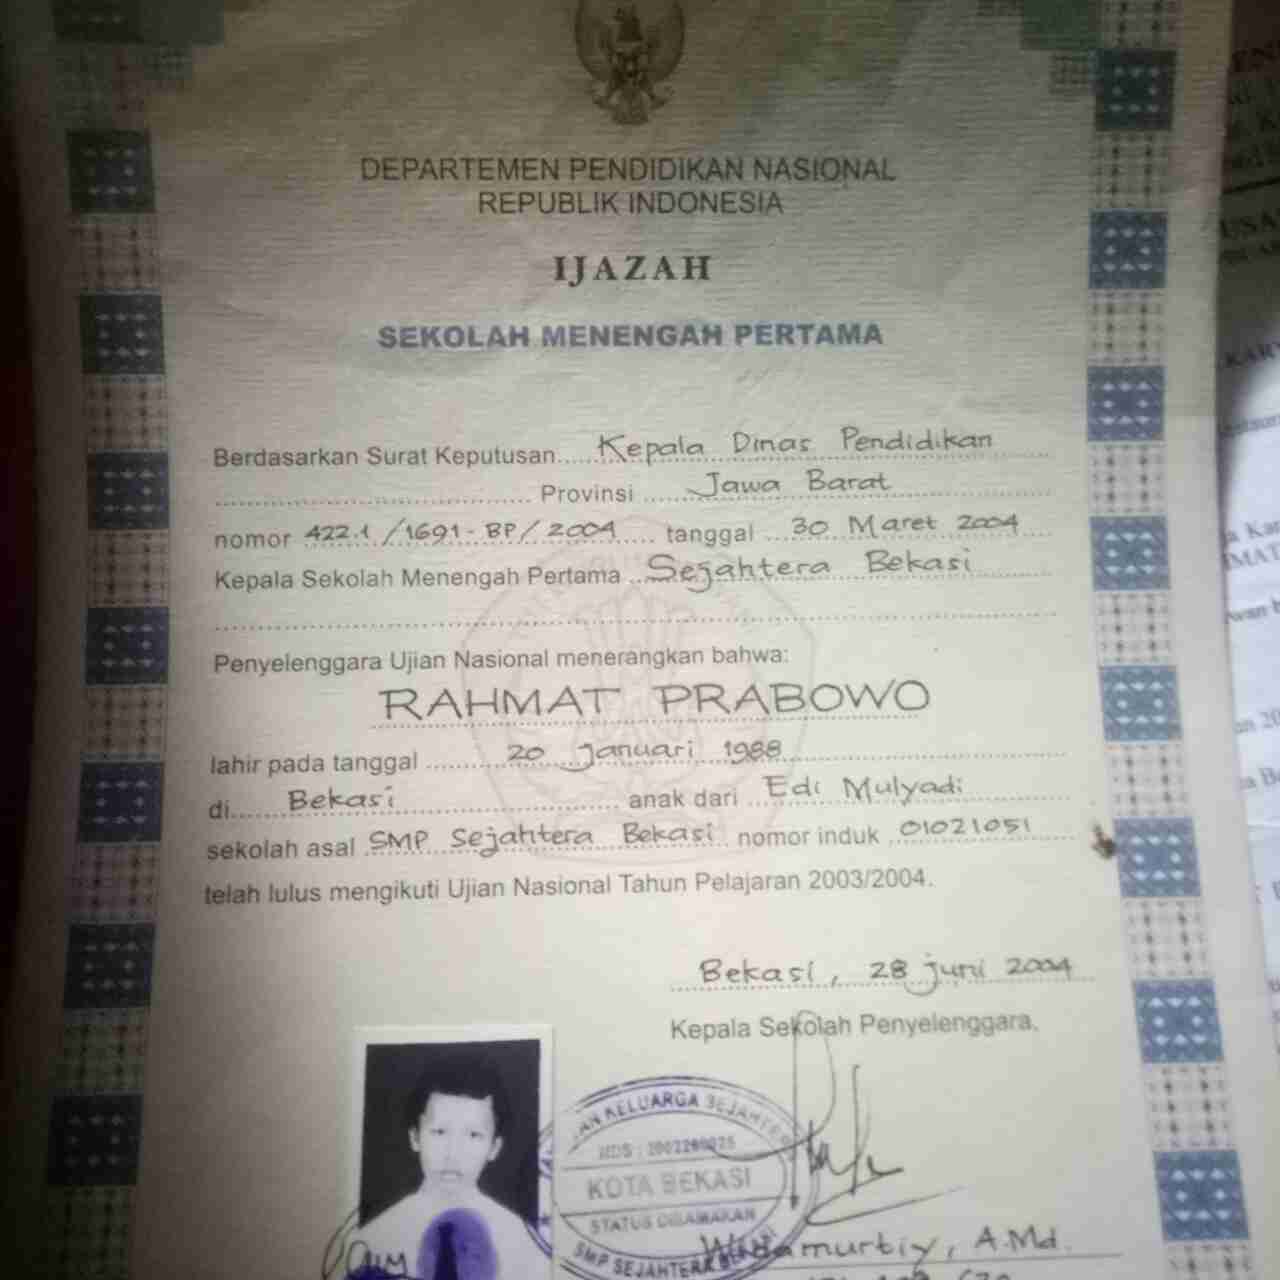 DEPARTEMEN PENDIDIKAN NASIONAL
REPUBLIK INDONESIA
IJAZAH
SEKOLAH MENENGAH PERTAMA
Berdasarkan Surat Keputusan Kepala Dinas Pendidikan
Provinsi Jawa Barat
nomor 422.1/1691-BP/2004 tanggal 30 Maret 2004
Kepala Sekolah Menengah Pertama Sejahtera Bekasi
Penyelenggara Ujian Nasional menerangkan bahwa:
RAHMAT PRABOWO
lahir pada tanggal 20 Januari 1988
di Bekasi anak dari Edi Mulyadi
sekolah asal SMP Sejahtera Bekasi nomor induk 01021051
telah lulus mengikuti Ujian Nasional Tahun Pelajaran 2003/2004.
Bekasi, 28 juni 2004
Kepala Sekolah Penyelenggara,
KELUARGA SEJAHTERA
KOTA BEKASI
STATUS DISAMAKAN
SMP SEJAHTERA
A.Md.